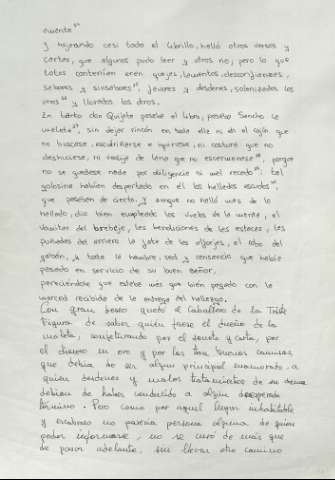 amante"
y hojeando casi todo el librillo, halló otros versos y
cartas, que algunos pudo leer y otros no; pero lo que
todos contenían eran quejas, lamentos, desconfianzas,
sabores y sinsabores, favores y desdenes, solenizados los
unos y llorados los otros.
En tanto don Quijote pasaba el libro, pasaba Sancho la
maleta, sin dejar rincón en toda ella ni en el cojín que
no buscase, escudriñase e inquiriese, ni costura que no
deshiciese, ni vedija de lana que no escarmenase, porque
no se quedase nada por diligencia ni mal recado: tal
golosina habían despertado en él los hallados escudos,
que pasaban de ciento. y aunque no halló más de lo
hallado, dio bien empleados los vuelos de la manta, el
vomitar del brebaje, las bendiciones de las estacas, las
puñadas del arriero la falta de las alforjas, el robo del
gabán, y toda la hambre, sed y cansancio que había
pasado en servicio de su buen señor,
pareciéndole que estaba más que bien pagado con la
merced recibida de la entrega del hallazgo.
Con gran deseo quedó el Caballero de la Triste
Figura de saber quién fuese el dueño de la
maleta, conjeturando por el soneto y carta, por
el dinero en oro y por las tan buenas camisas
que debía de ser algún principal enamorado, a
quien desdenes y malos tratamientos de su dama
debían de haber conducido a algún desesperado
término. Pero como por aquel lugar inhabitable
y escabroso no parecía persona alguna de quien
poder informarse, no se curó de más que
de pasar adelante, sin llevar otro camino